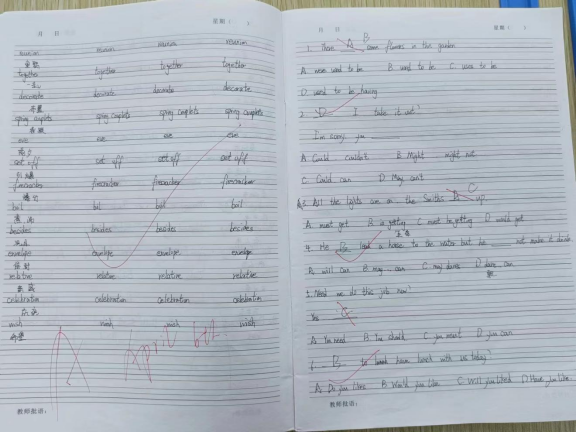 月 日 星期( )
reunion reunion reunion reunion
together together together together
decorate decorate decorate decorate
spring couplets spring couplets spring couplets spring couplets
eve eve eve eve
set off set off set off set off
firecracker firecracker firecracker firecracker
boil boil boil boil
besides besides besides besides
envelope envelope envelope envelope
relative relative relative relative
celebration celebration celebration celebration
wish wish wish wish
April
教师批语:
月 日 星期( )
1. There A B some flowers in this garden
A. were used to be B. used to be C. uses to be
D. used to be having
2. D I take it out?
I'm sorry, you
A. Could couldn't B. Might might not
C. Could can D. May can't
3. All the lights are on, the Smiths C up.
A. must get B. is getting C. must be getting D. would get
4. He D lead a horse to the water but he not make it drink
A. will can B. may can C. may dares D. dare can
5. Need we do this job now?
Yes C
A. You need B. You should C. you must D. you can
6. B to have lunch with us today?
A. Do you likes B. Would you like C. Will you liked D. Have you like
教师批语: